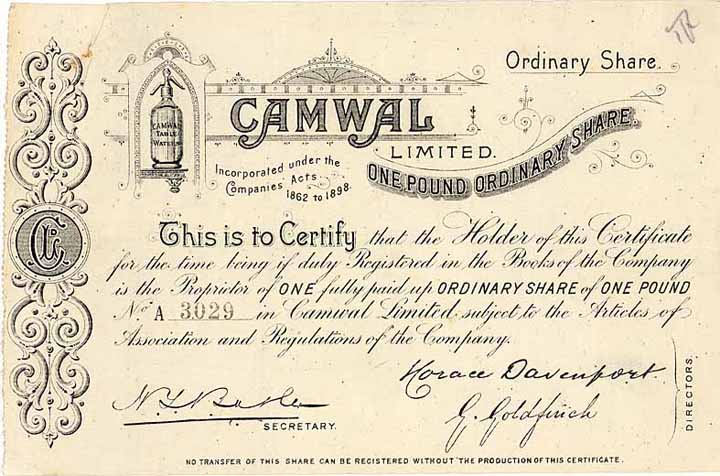 Ordinary Share.
CAMWAL
TABLE
WATERS
CAMWAL
LIMITED.
Incorporated under the
Companies Acts
1862 to 1898.
ONE POUND ORDINARY SHARE.
This is to Certify that the Holder of this Certificate
for the time being if duly Registered in the Books of the Company
is the Proprietor of ONE fully paid up ORDINARY SHARE of ONE POUND
No. A 3029 in Camwal Limited subject to the Articles of
Association and Regulations of the Company.
Horace Davenport
G. Goldfinch
DIRECTORS.
SECRETARY.
NO TRANSFER OF THIS SHARE CAN BE REGISTERED WITHOUT THE PRODUCTION OF THIS CERTIFICATE.